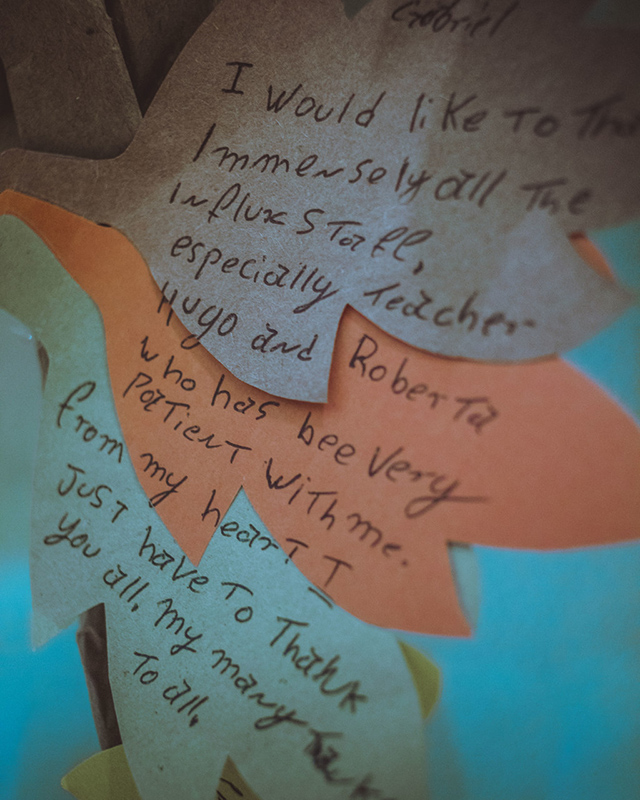 Gabriel
I would like To
Immensely all The
Influx STaff,
especially Teacher
Hugo and Roberta
who has bee very
PaTienT wiTh me.
from my hearT I
JusT have To Thank
you all. my many
To all.